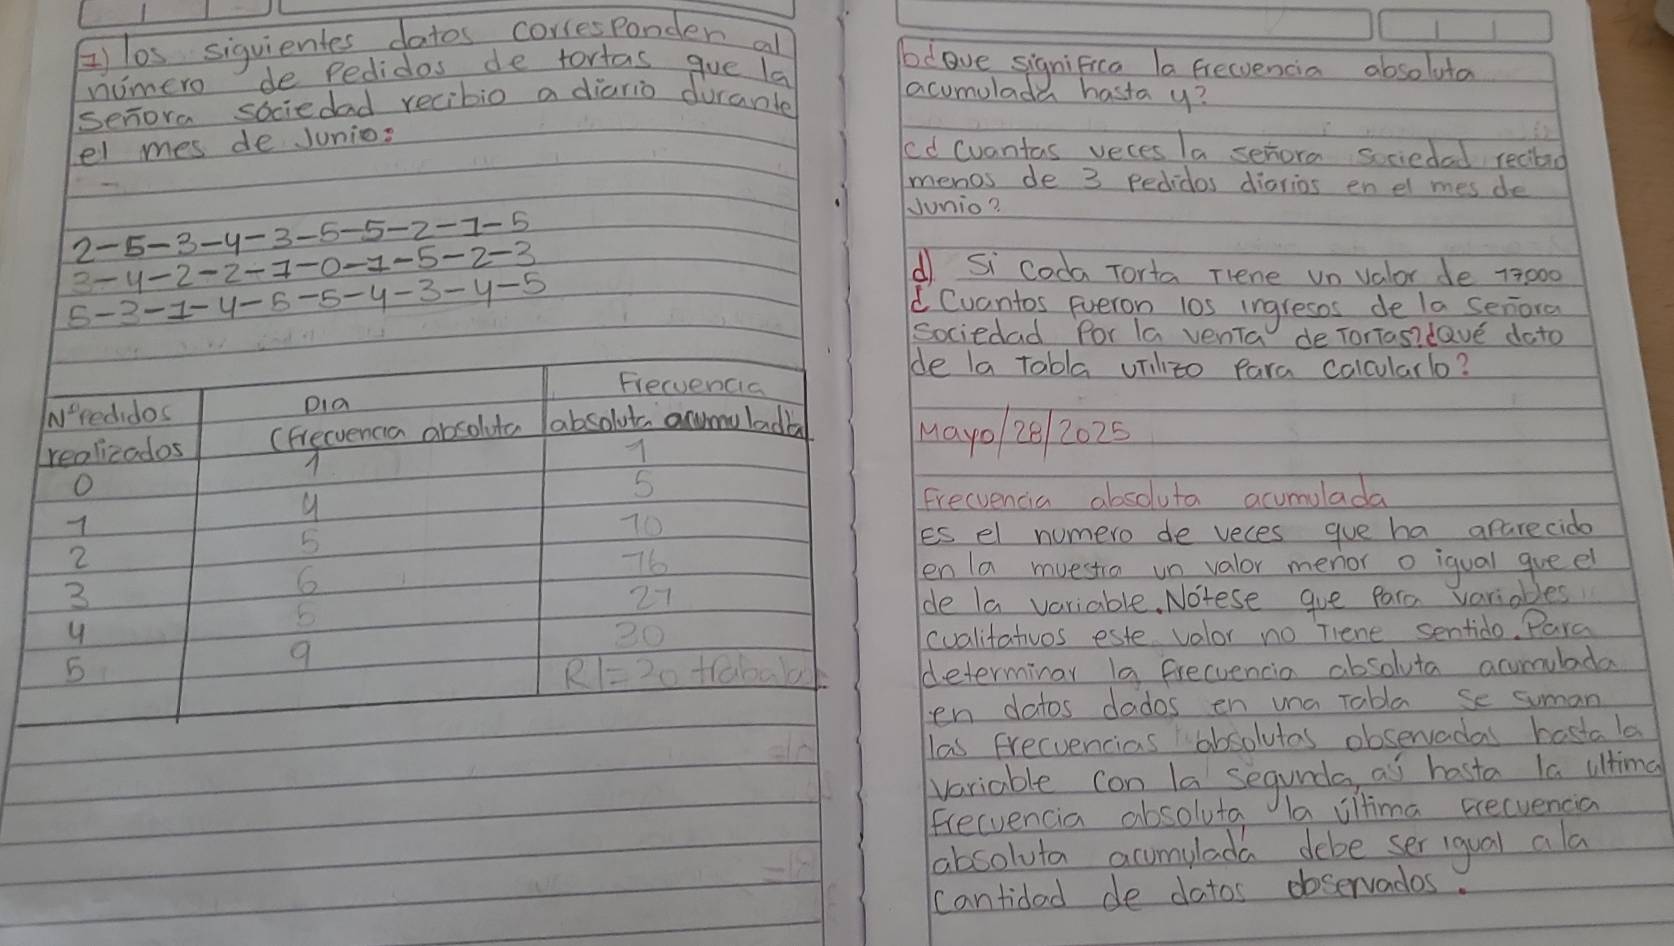 1) los siguientes datos corresponden al
número de Pedidos de tortas que la
señora sociedad recibio a diario durante
el mes de Junio:
2-5-3-4-3-5-5-2-1-5
3-4-2-2-1-0-1-5-2-3
5-3-1-4-5-5-4-3-4-5
N° Pedidos realizados | Dia (frecuencia absoluta | Frecuencia absoluta acumulada
0 | 1 | 1
1 | 4 | 5
2 | 5 | 10
3 | 6 | 16
4 | 5 | 21
5 | 9 | 30
R/=
b¿Que significa la frecuencia absoluta
acumulada hasta 4?
c¿ Cuantas veces la señora sociedad recibio
menos de 3 Pedidos diarios en el mes de
Junio?
d) Si Cada Torta Tiene un valor de 17,000
¿Cuantos fueron los ingresos de la señora
sociedad Por la venta de Tortas?¿Qué dato
de la Tabla utilizo Para Calcularlo?
Mayo/28/2025
Frecuencia absoluta acumulada
Es el numero de veces que ha aparecido
en la muestra un valor menor o igual que el
de la variable. Nótese que Para variables
cualitativos este valor no Tiene sentido. Para
determinar la frecuencia absoluta acumulada
en datos dados en una Tabla se suman
las frecuencias absolutas observadas hasta la
variable con la segunda, así hasta la ultima
frecuencia absoluta la última frecuencia
absoluta acumulada debe ser igual a la
cantidad de datos observados.